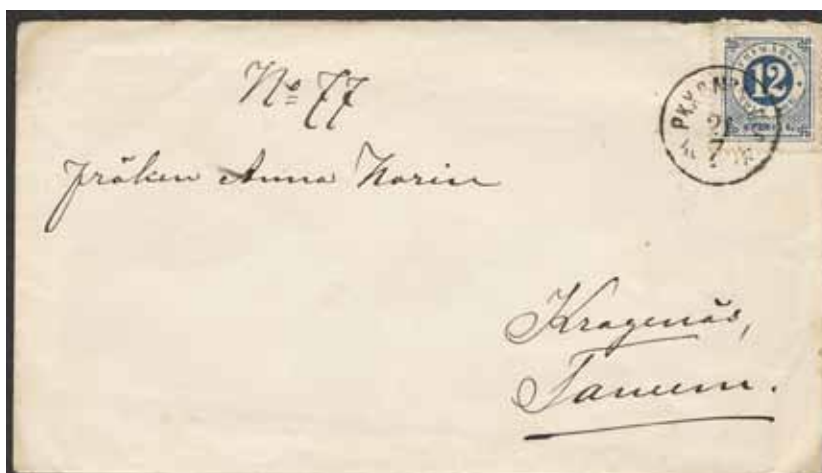 No 77
12
PKXP No
21
7
Fröken Anna Norin
Kragenäs,
Tanum.